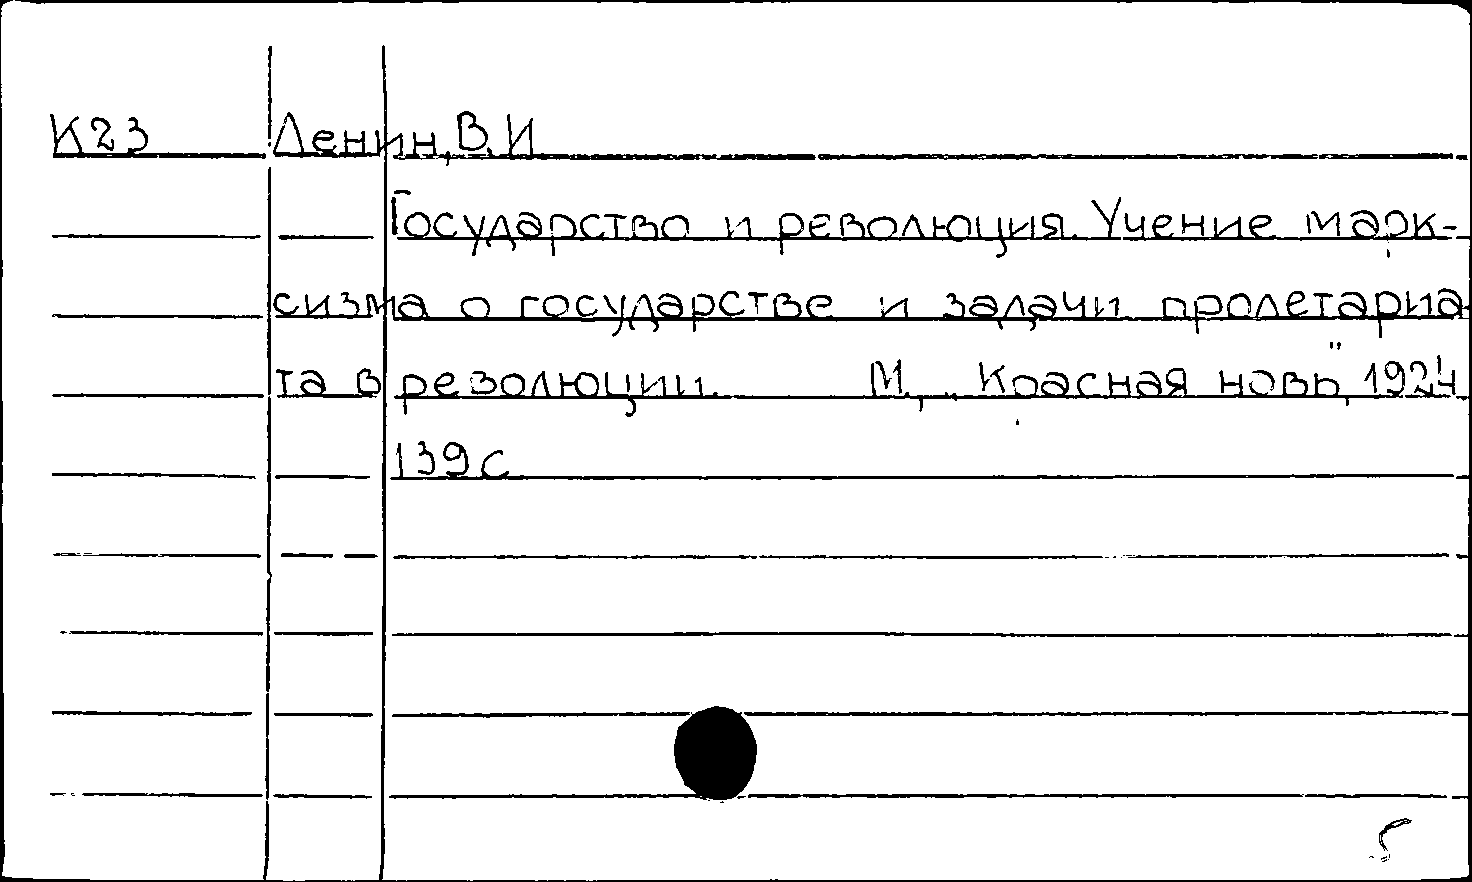 К23 Ленин, В.И.
Государство и революция. Учение марк-
сизма о государстве и задачи пролетариа-
та в революции. М., „Красная новь", 1924
139с
5